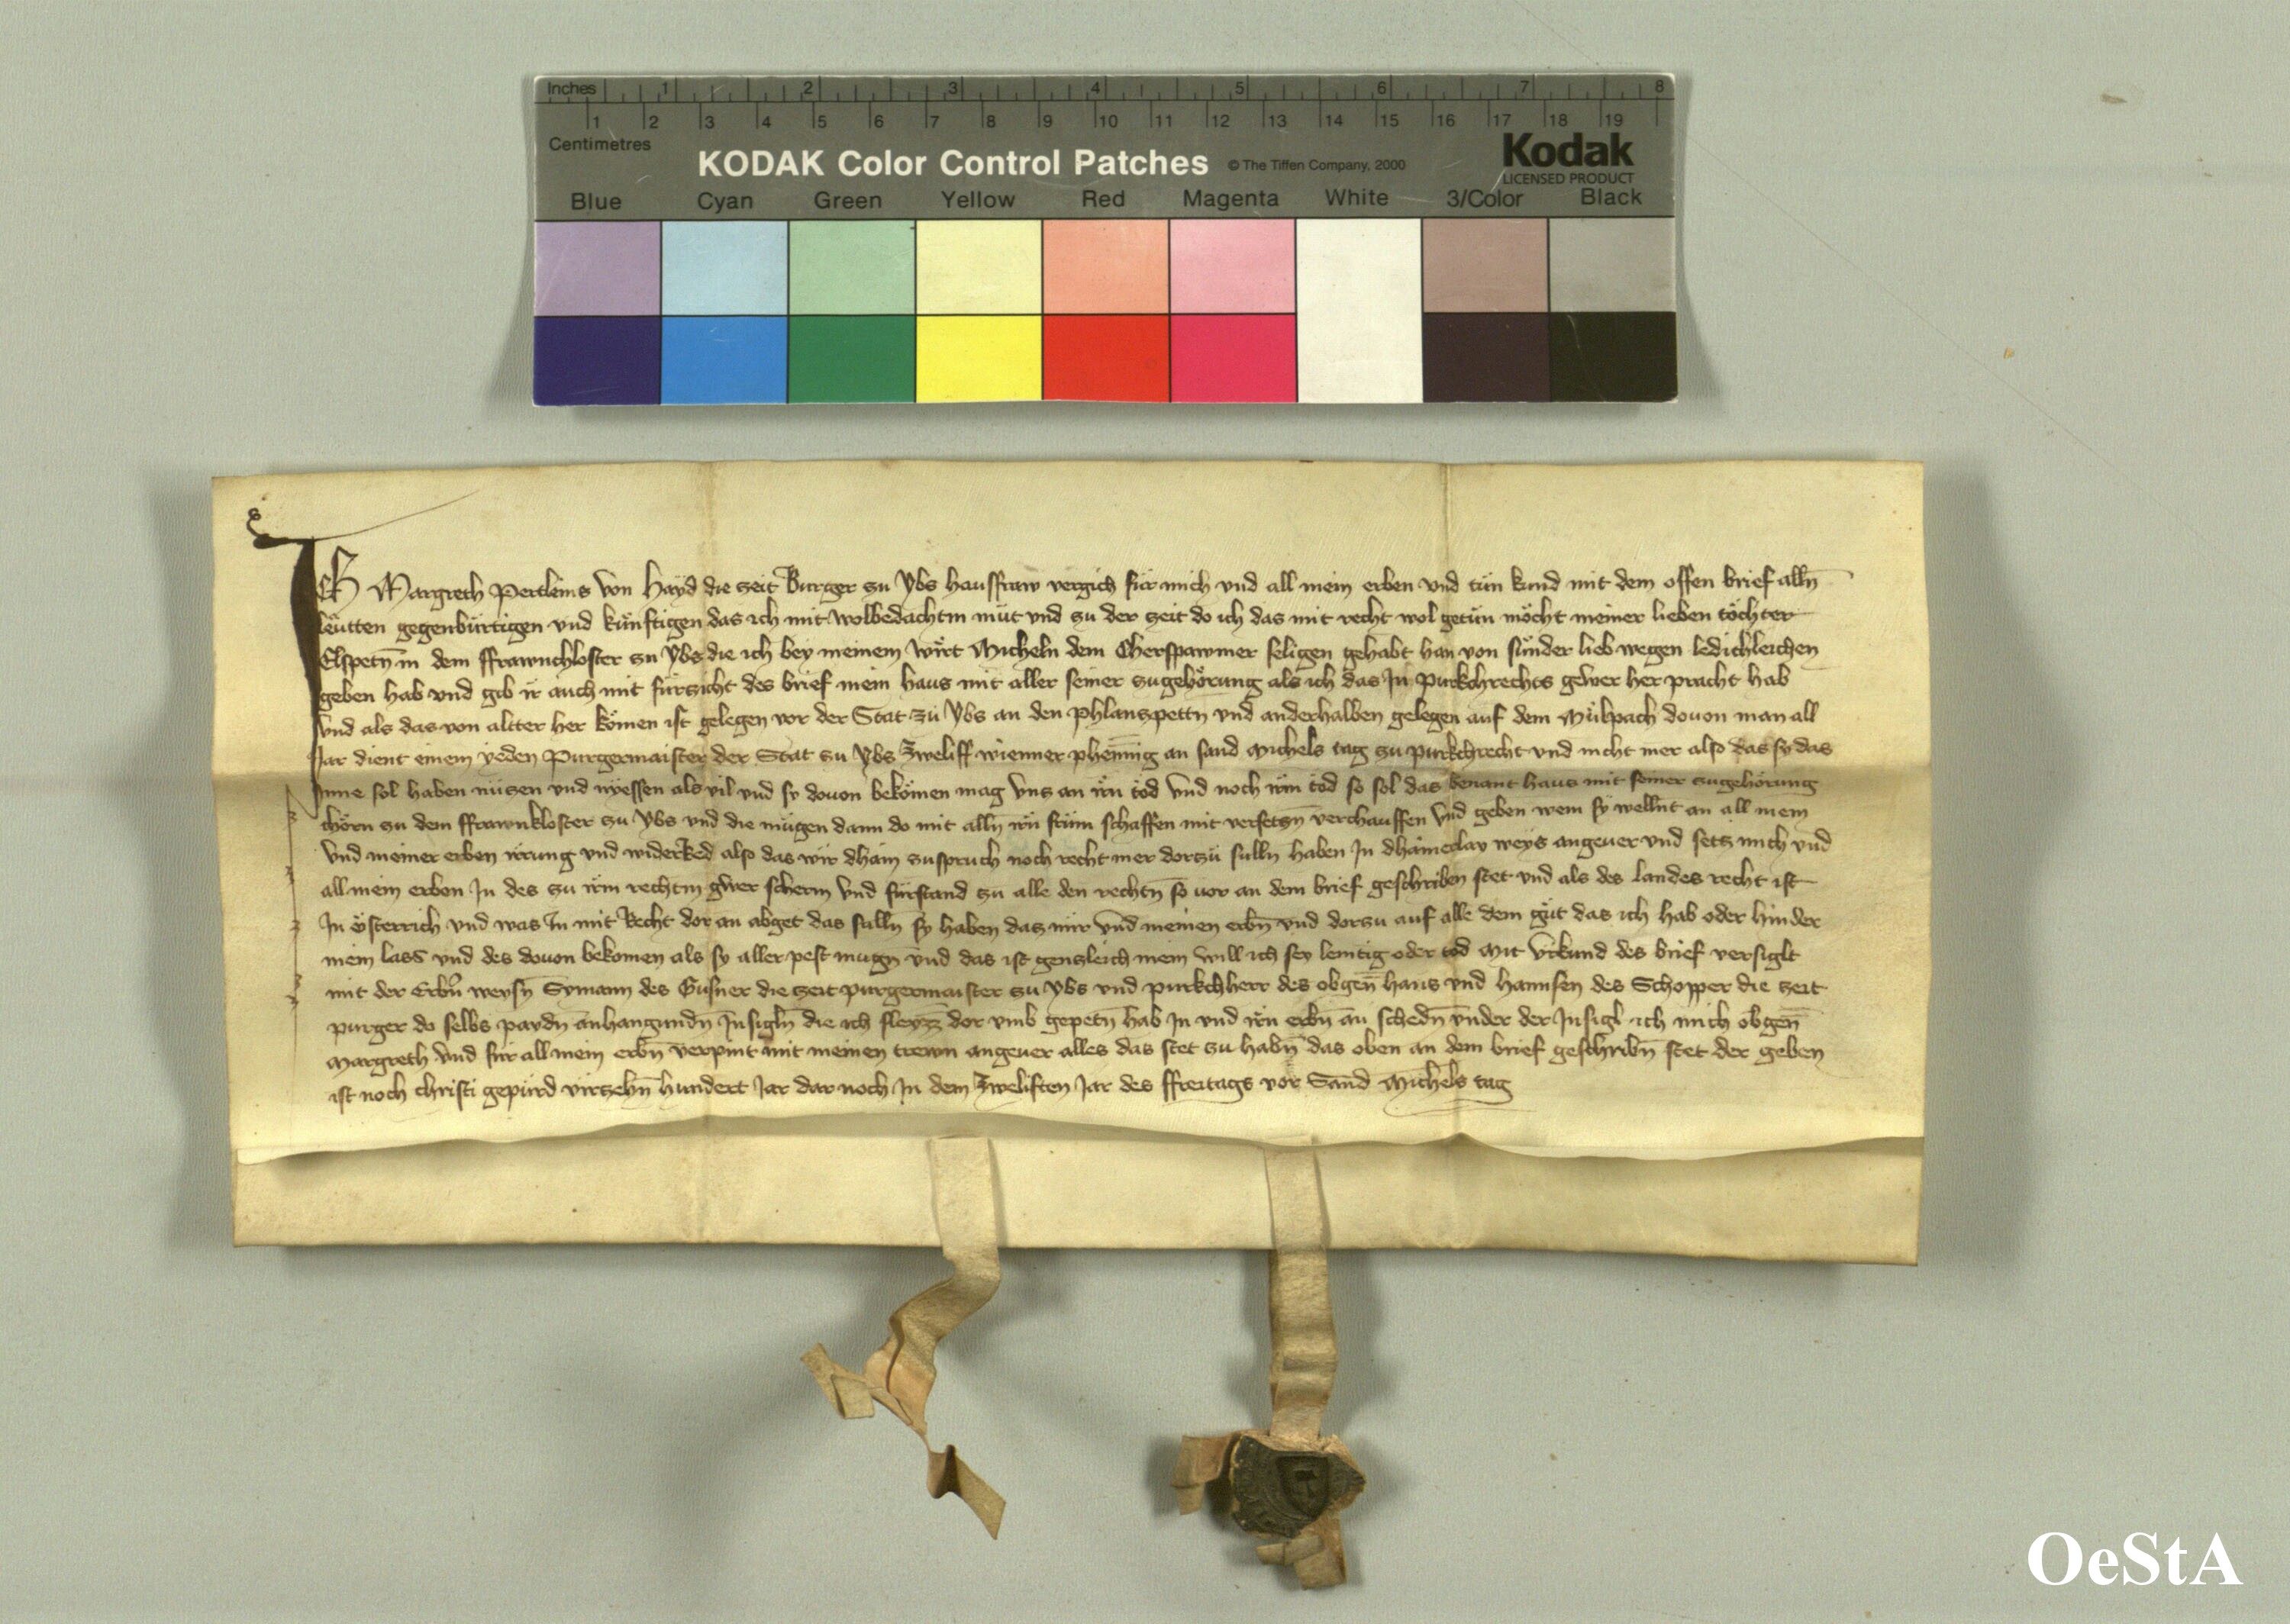 Inches 1 2 3 4 5 6 7 8
1 2 3 4 5 6 7 8 9 10 11 12 13 14 15 16 17 18 19
Centimetres
KODAK Color Control Patches © The Tiffen Company, 2000 Kodak
LICENSED PRODUCT
Blue Cyan Green Yellow Red Magenta White 3/Color Black
Ich Margreth Pertleins von Hayd die zeit Burger zu Ybs hausfraw vergich für mich vnd all mein erben vnd tün kund mit dem offen brief alln̄
leütten gegenbürtigen vnd künftigen das ich mit wolbedachtm müt vnd zu der zeit do ich das mit recht wol getün möcht meiner lieben töchter
Elspetn̄ in dem ffrawnchloster zu Ybs die ich bey meinem wirt Micheln dem seligen gehabt han von sünder lieb wegen ledichleichen
geben hab vnd gib ir auch mit fürzicht des brief mein haus mit aller seiner zugehörung als ich das In purkchrechts gewer her pracht hab
vnd als das von altter her kömen ist gelegen vor der Stat zü Ybs an den phlanspettn vnd anderhalben gelegen auf dem Mülpach douon man all
Jar dient einem yeden Purgermaister der Stat zu Ybs Zweliff wienner phenning an sand Michels tag zu purkchrecht vnd nicht mer also das sy das
Inne sol haben nüzen vnd nyessen als vil vnd sy douon bekömen mag vns an irn töd vnd noch irm töd so sol das benant haus mit seiner zugehörung
chörn zu dem ffrawnkloster zu Ybs vnd die mügen dann do mit alln̄ irn frům schaffen mit versetzn̄ verchauffen vnd geben wem sy wellnt an all mein
vnd meiner erben irrung vnd widerred also das wir dhain zuspruch noch recht mer dorzü sulln haben In dhainerlay weys angeuer vnd setz mich vnd
all mein erben In des zu irm rechtm gwer scherm vnd fürstand zu alle den rechtn̄ so vor an dem brief geschriben stet vnd als des landes recht ist
In Österrich vnd was In mit Recht dor an abget das sulln̄ sy haben das mir vnd meinen erbn̄ vnd dorzu auf alle dem güt das ich hab oder hinder
mein lass vnd des douon bekomen als sy aller pest mugn̄ vnd das ist genzleich mein will ich sey lemtig oder tod Mit vrkund des brief versiglt
mit der Erbn̄ weysn̄ Symann des Gusner die zeit purgermaister zu Ybs vnd purkchherr des obgen̄ haus vnd Hannsen des Schopper die zeit
purger do selbs paydn̄ anhangundn̄ Insigln̄ die ich fleyzz dor vmb gepetn̄ hab In vnd irn erbn̄ an schedn̄ vnder der Insigl ich mich obgen̄
Margreth vnd für all mein erbn̄ verpint mit meinen trewn angeuer alles das stet zu habn̄ das oben an dem brief geschribn̄ stet der geben
ist noch christi gepürd virzehn̄ hundert Jar dar noch In dem Zweliften Jar des ffreitags vor Sand Michels tag
OeStA